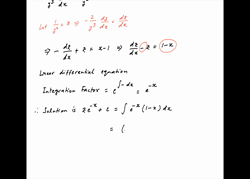 y³ dx y²
Let 1/y² = z ⇒ -2/y³ dy/dx = dz/dx
⇒ - dz/dx + z = x-1 ⇒ dz/dx - z = 1-x
Linear differential equation
Integration Factor = e^∫-dx = e^-x
∴ Solution is z e^-x + c = ∫ e^-x (1-x) dx
= (